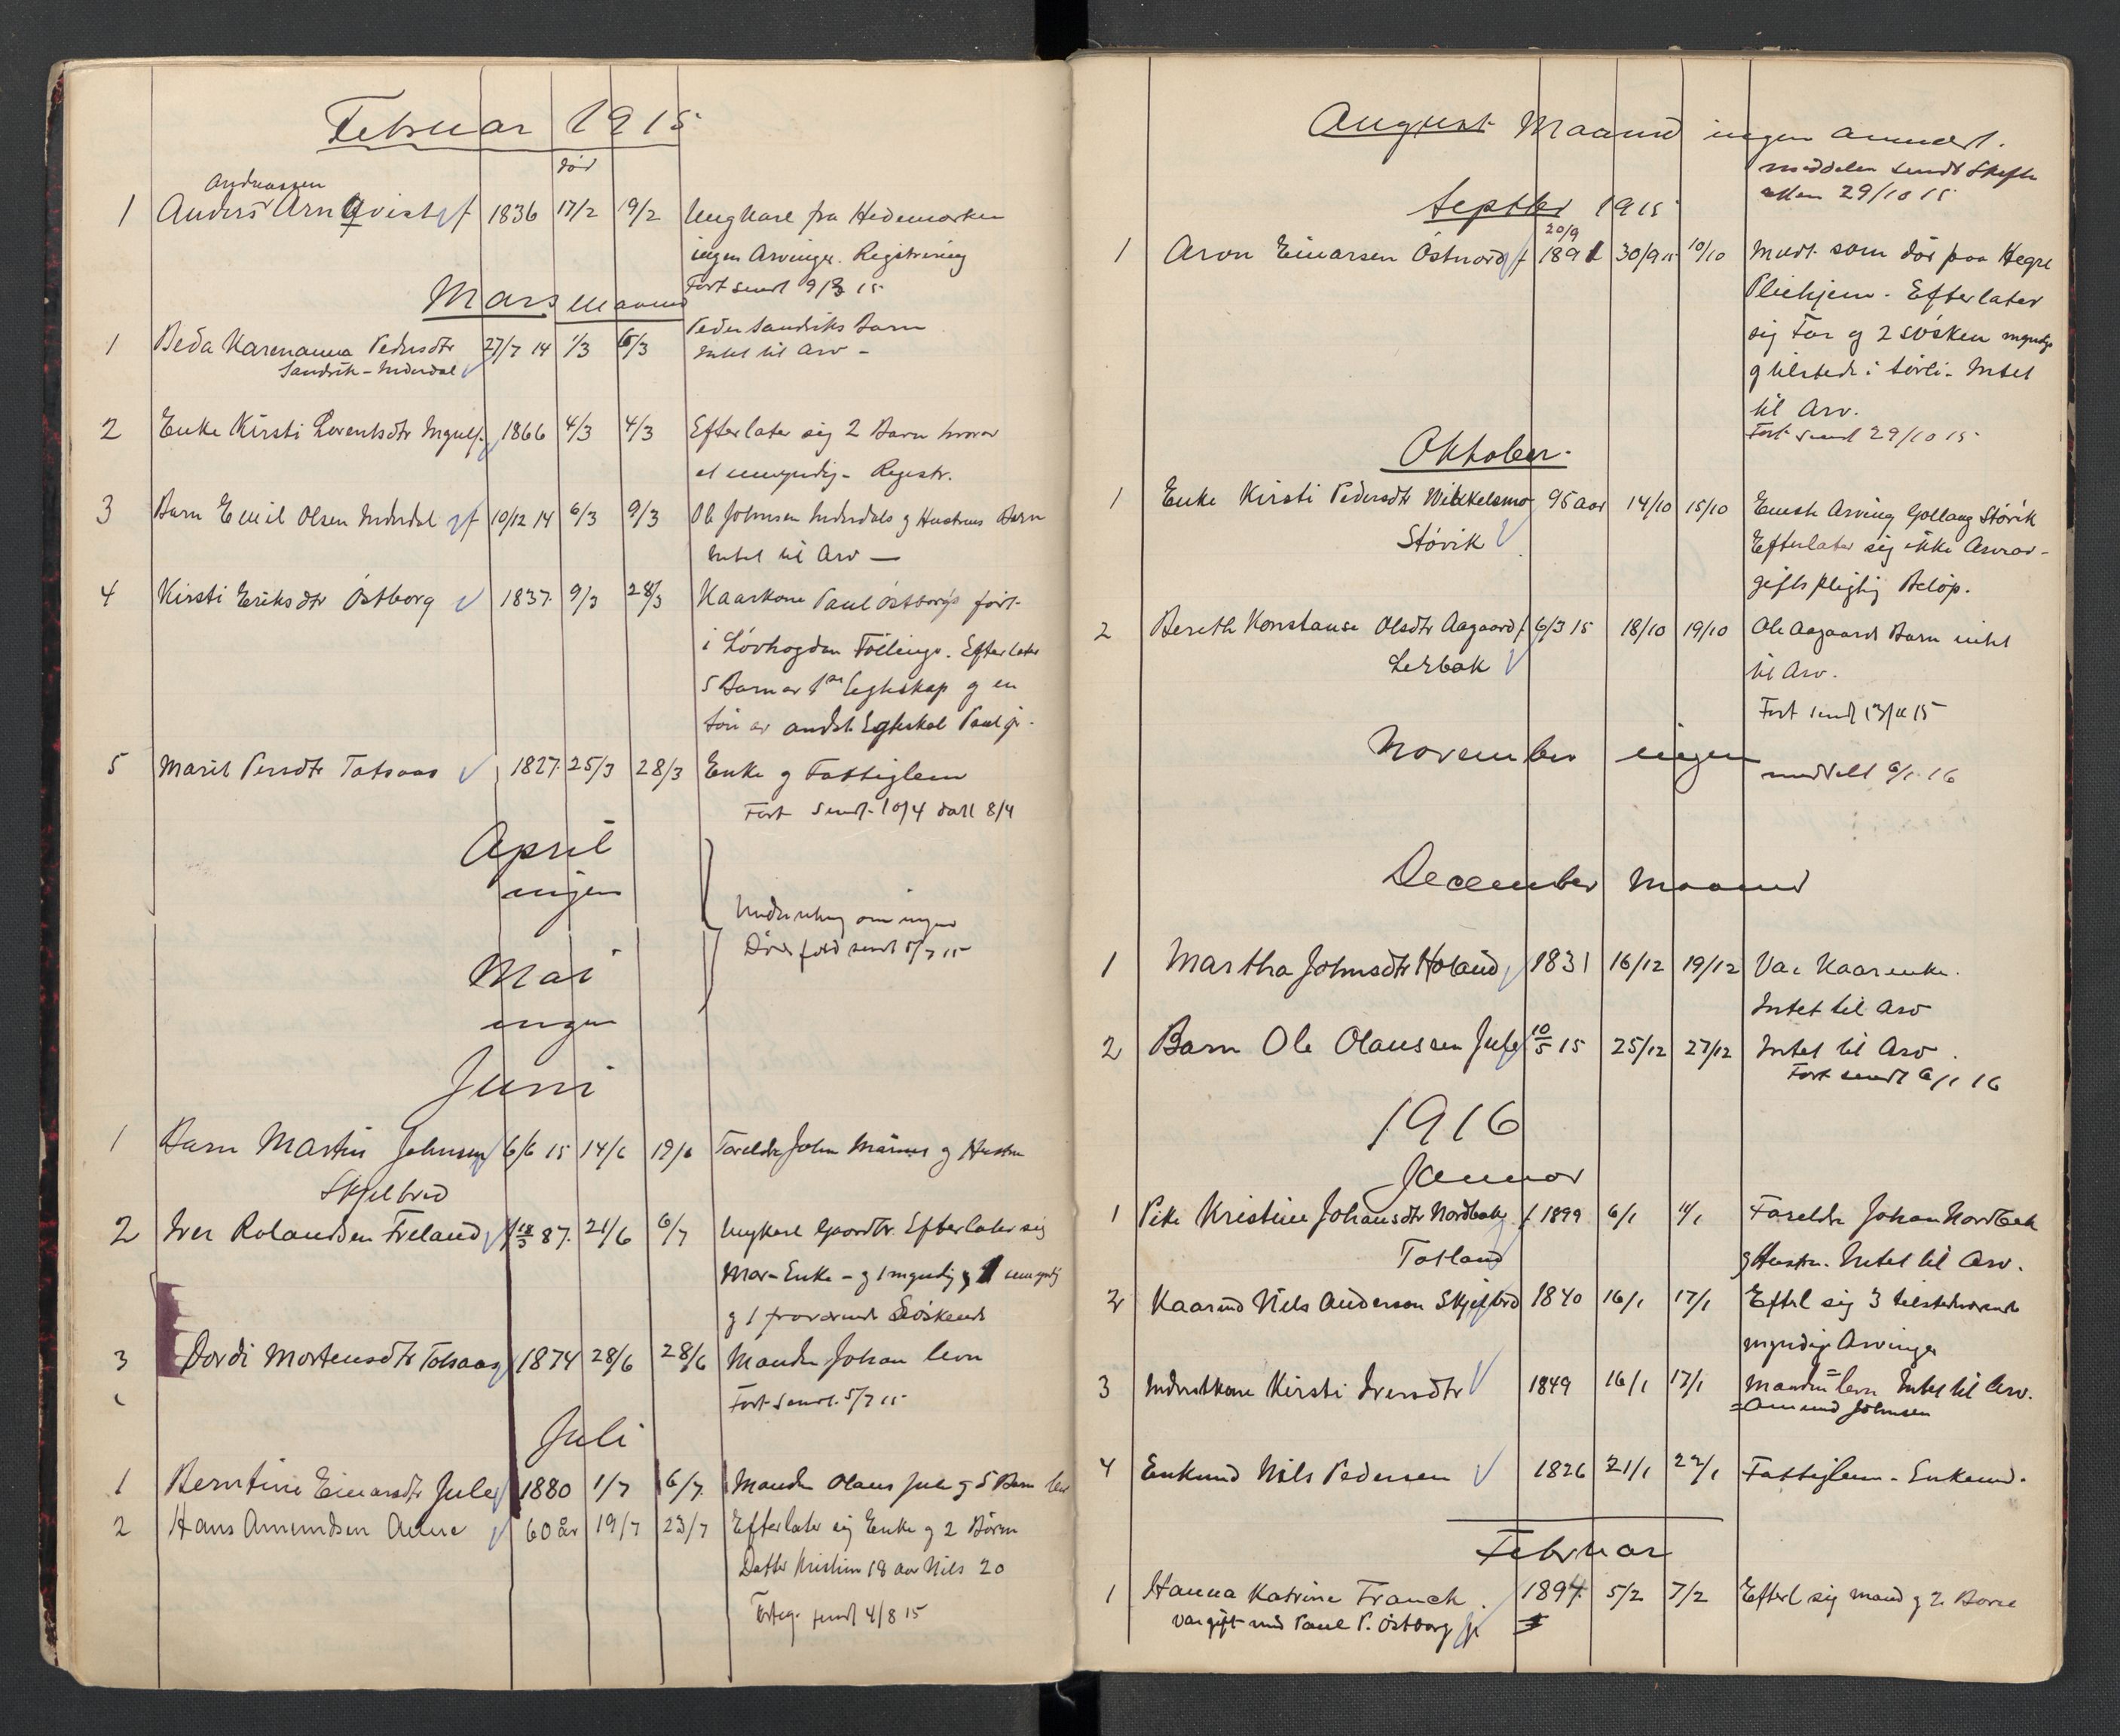 Februar 1915
död
Andreassen
1 Anders Arnqvist 1836 17/2 19/2 Ungkarl fra Hedemarken
ingen Arvinger. Registrering
Fort sendt 9/3 15
Mars maaned
1 Beda Karenanna Pedersdtr 27/7 14 1/3 6/3 Peder Sandviks Barn
Sandvik - Inderdal Intet til Arv -
2 Enke Kirsti Lorentsdtr 1866 4/3 4/3 Efterlater sig 2 Barn hvorav
et umyndig - Registr.
3 Barn Emil Olsen Inderdal 10/12 14 6/3 9/3 Ole Johnsen Inderdals og Hustrus Barn
Intet til Arv —
4 Kirsti Eriksdtr Östborg 1837. 9/3 28/3 Kaarkone Paul Östborgs
i Lövhogden Föllinge. Efterlater
5 Barn av 1ste Egteskap og en
Sön av andet Egteskab Paul jr.
5 Marit Persdtr Totsaas 1827 25/3 28/3 Enke og Fattiglem
Fort sendt 10/4 datt 8/4
April
ingen
Underretning om ingen
Dödsfald sendt 5/7 15
Mai
ingen
Juni
1 Barn Martin Johnsen 6/6 15 14/6 19/6 Foreldre John Marius og Hustru
Skjelbred
2 Iver Rolandsen Freland 18/3 87. 21/6 6/7 Ungkarl Gaardbr. Efterlater sig
Mor - Enke - og 1 myndig og 1 umyndig
og 1 fraværende Söskende
3 Dordi Mortensdtr Totsaas 1874 28/6 28/6 Manden Johan lever
Fort sendt. 5/7 15
Juli
1 Berntine Einarsdtr Jule 1880 1/7 6/7 Manden Olaus Jule og 5 Barn lever
2 Hans Amundsen Aune 60 år 19/7 23/7 Efterlater sig Enke og 2 Börn
Datter Kristine 18 aar Nils 20
Forteg. sendt 4/8 15
August Maaned ingen anmeldt.
meddelen sendt Skifte
retten 29/10 15
Septber 1915
20/9
1 Aron Einarsen Östnord 1891 30/9 15 10/10 Medt. som dör paa Hegre
Pleiehjem. Efterlater
sig Far og 2 Sösken myndige
og tilstede i Sörli. Intet
til Arv.
Fort sendt 29/10 15
Oktober.
1 Enke Kirsti Pedersdtr Winkelsmo 95 aar 14/10 15/10 Eneste Arving Gollaug Stövik
Stövik Efterlater sig ikke Arvav-
gifts pligtig Belöp.
2 Bereth Konstanse Olsdtr Aagaard 6/3 15 18/10 19/10 Ole Aagaards Barn intet
Lerbak til Arv.
Fort sendt 13/11 15
November ingen meddelt 6/1 16
December Maaned
1 Martha Johnsdtr Holand 1831 16/12 19/12 Var Kaarenke.
Intet til Arv
2 Barn Ole Olaussen Jule 10/5 15 25/12 27/12 Intet til Arv.
Fort sendt 6/1 16
1916
Januar
1 Pike Kristine Johansdtr Nordbak 1899 6/1 11/1 Foreldre Johan Nordbak
Totland og Hustru. Intet til Arv.
2 Kaarmd Nils Anderson Skjelbred 1840 16/1 17/1 Efterl sig 3 tilstedeværende
myndige Arvinger
3 Inderstkone Kirsti Iversdtr 1849 16/1 17/1 Manden = lever Intet til Arv.
= Amund Johnsen
4 Enkemd Nils Pedersen 1826 21/1 22/1 Fattiglem - Enkemd.
Februar
1 Hanna Katrine Franck. 1894. 5/2 7/2 Efterl sig mand og 2 Barn
var gift med Paul P. Östborg jr